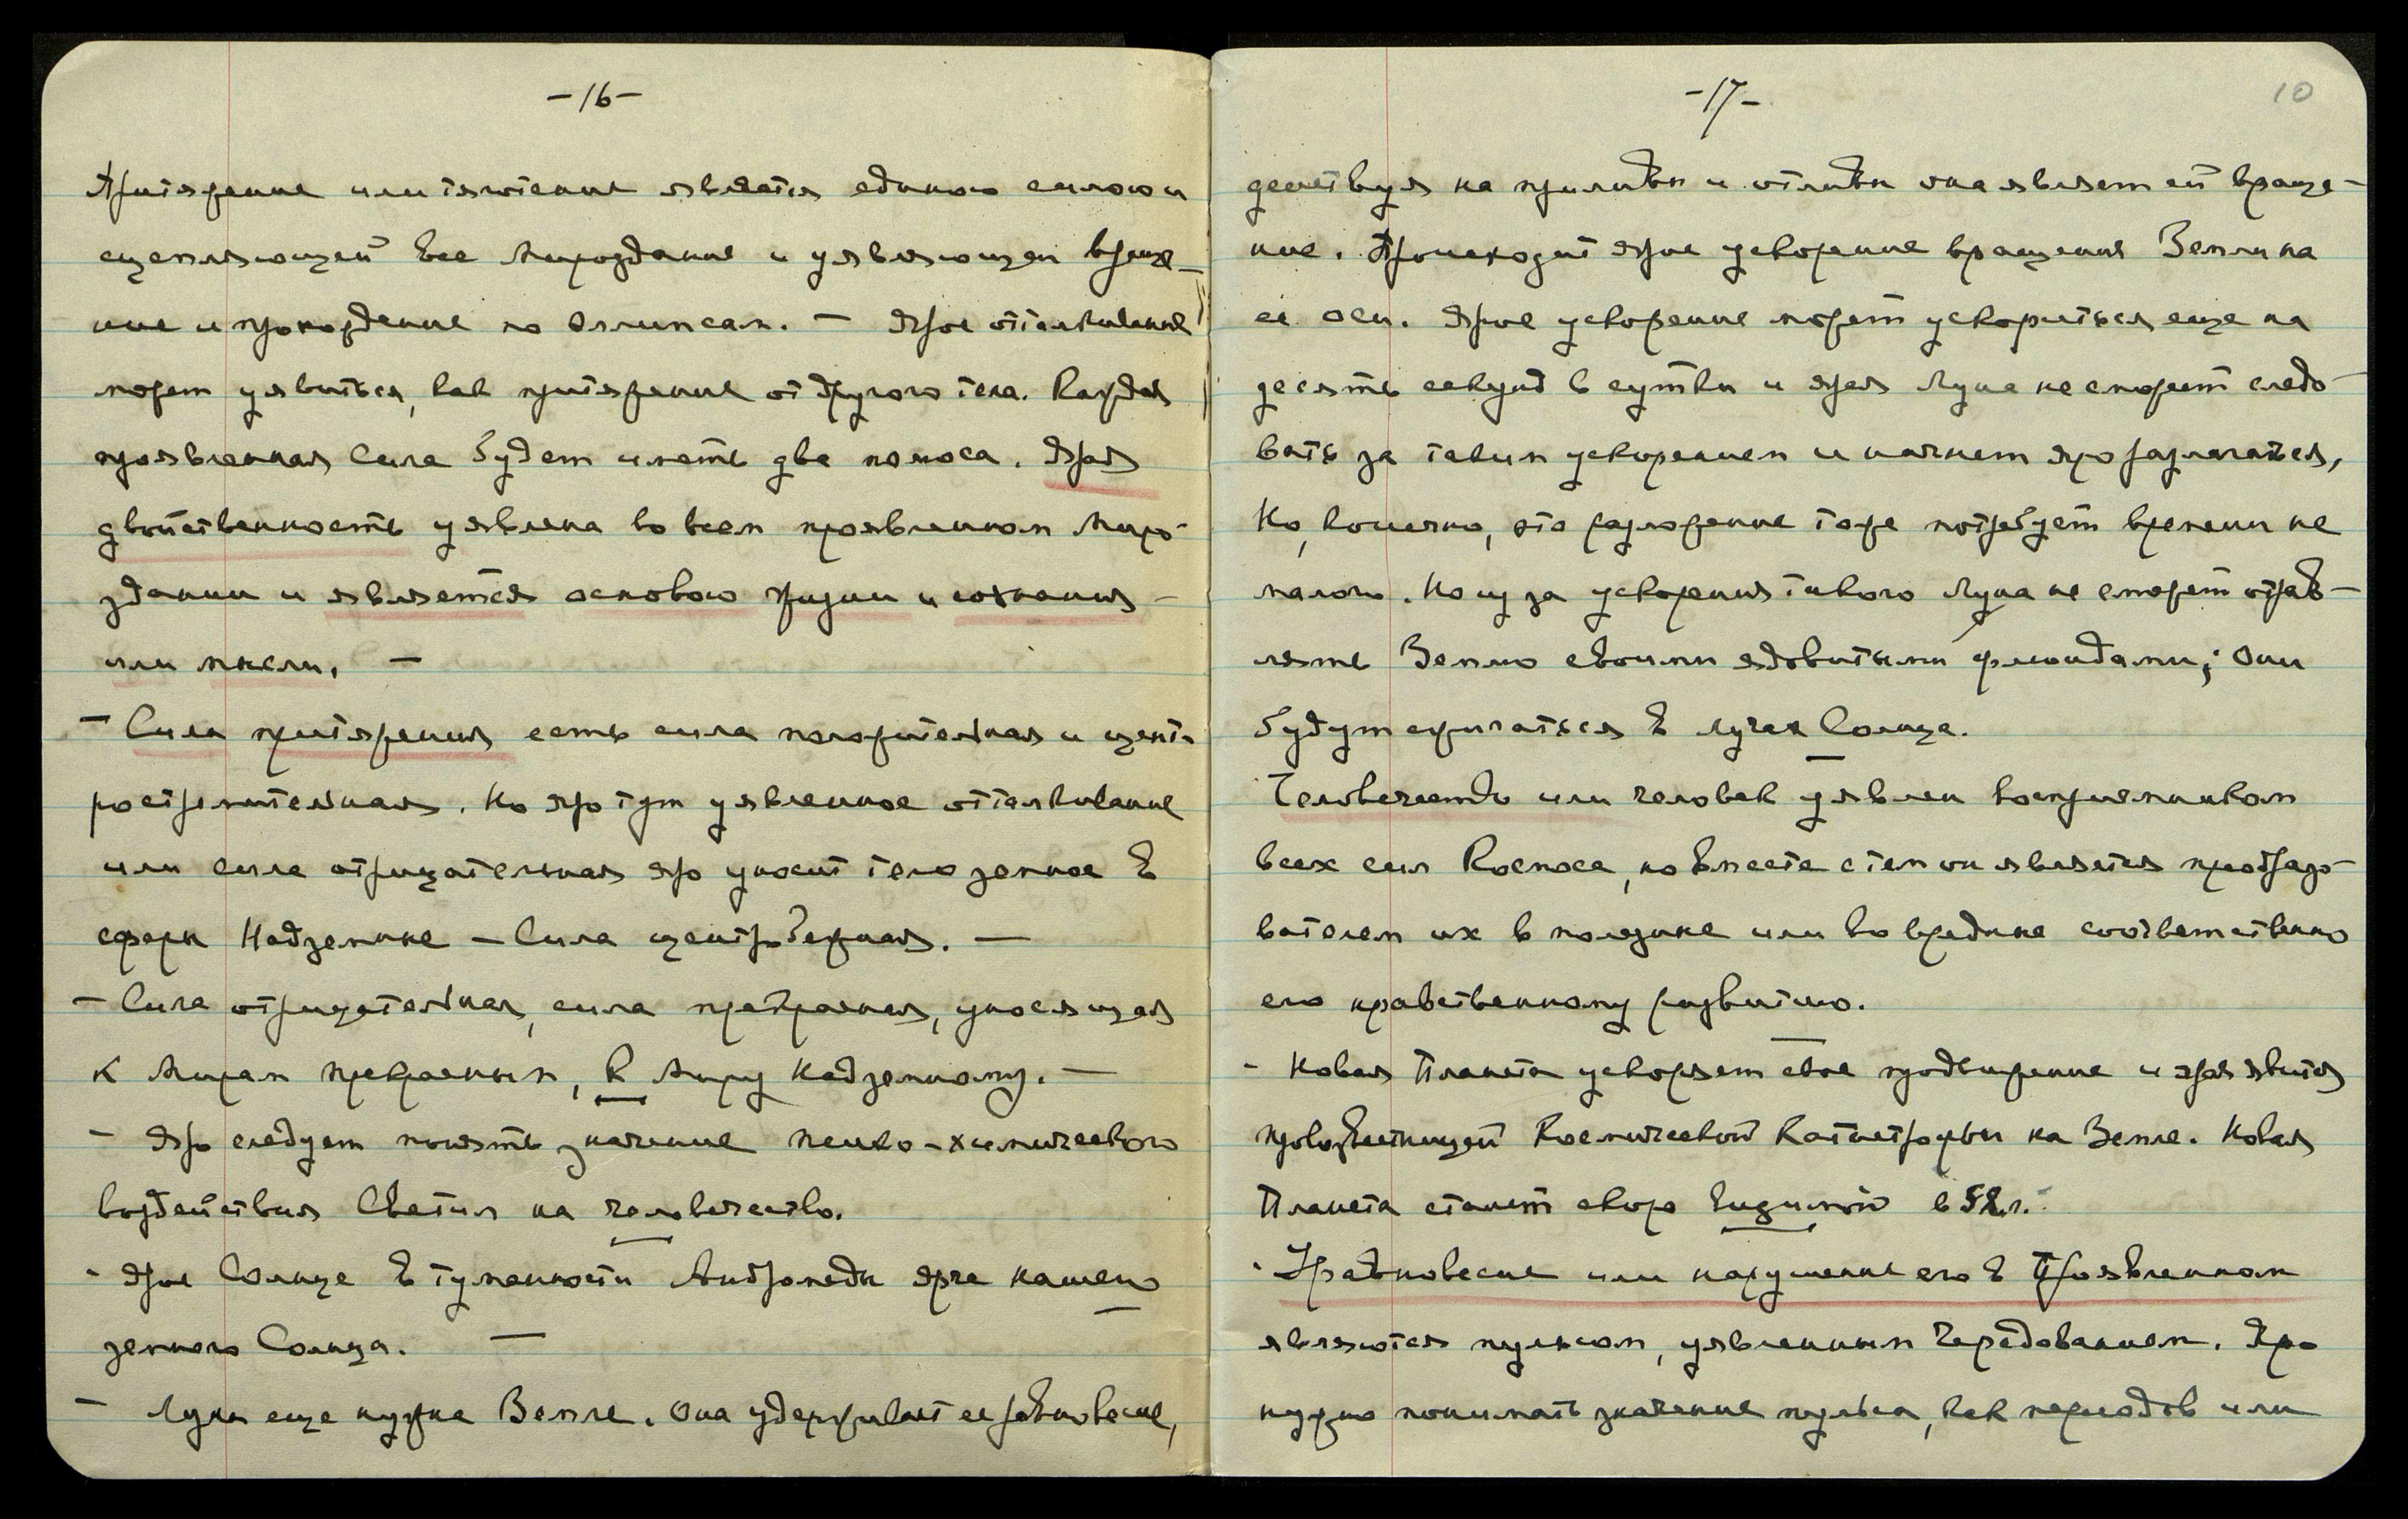 -16-
Притяжение или тяготение является единою силою и
сцепляющей все Мироздание и уявляющей враще-
ние и прохождение по Эллипсам. — Ярое отталкивание
может уявиться, как притяжение от другого тела. Каждая
проявленная Сила будет иметь два полюса. Ярая
двойственность уявлена во всем проявленном Миро-
здании и является основою жизни и сознания —
или мысли. —
— Сила притяжения есть сила положительная и цент-
ростремительная. Но яро тут уявленное отталкивание
или сила отрицательная яро уносит тело земное в
сферы Надземные — Сила центробежная. —
— Сила отрицательная, сила прекрасная, уносящая
к Мирам прекрасным, к Миру Надземному. —
— Яро следует понять значение психо-химического
воздействия Светил на человечество.
- Ярое Солнце в туманности Андромеды ярче нашего
земного Солнца. —
— Луна еще нужна Земле. Она удерживает ее равновесие,
-17-
10
действуя на приливы и отливы она являет ей враще-
ние. Происходит ярое ускорение вращения Земли на
ее оси. Ярое ускорение может ускориться еще на
десять секунд в сутки и ярая Луна не сможет следо-
вать за таким ускорением и начнет яро разлагаться,
Но, конечно, это разложение тоже потребует времени не
малого. Но из за ускорения такого Луна не сможет отрав-
лять Землю своими ядовитыми флюидами; Они
будут сжигаться в лучах Солнца.
Человечество или человек уявлен восприемником
всех сил Космоса, но вместе с тем он является преобразо-
вателем их в полезные или во вредные соответственно
его нравственному развитию.
- Новая Планета ускоряет свое продвижение и ярая явится
провозвестницей Космической Катастрофы на Земле. Новая
Планета станет скоро видимой в 52 г.
- Уравновесие или нарушение его в Проявленном
являются пульсом, уявленным Чередованием. Яро
нужно понимать значение пульса, как периодов или